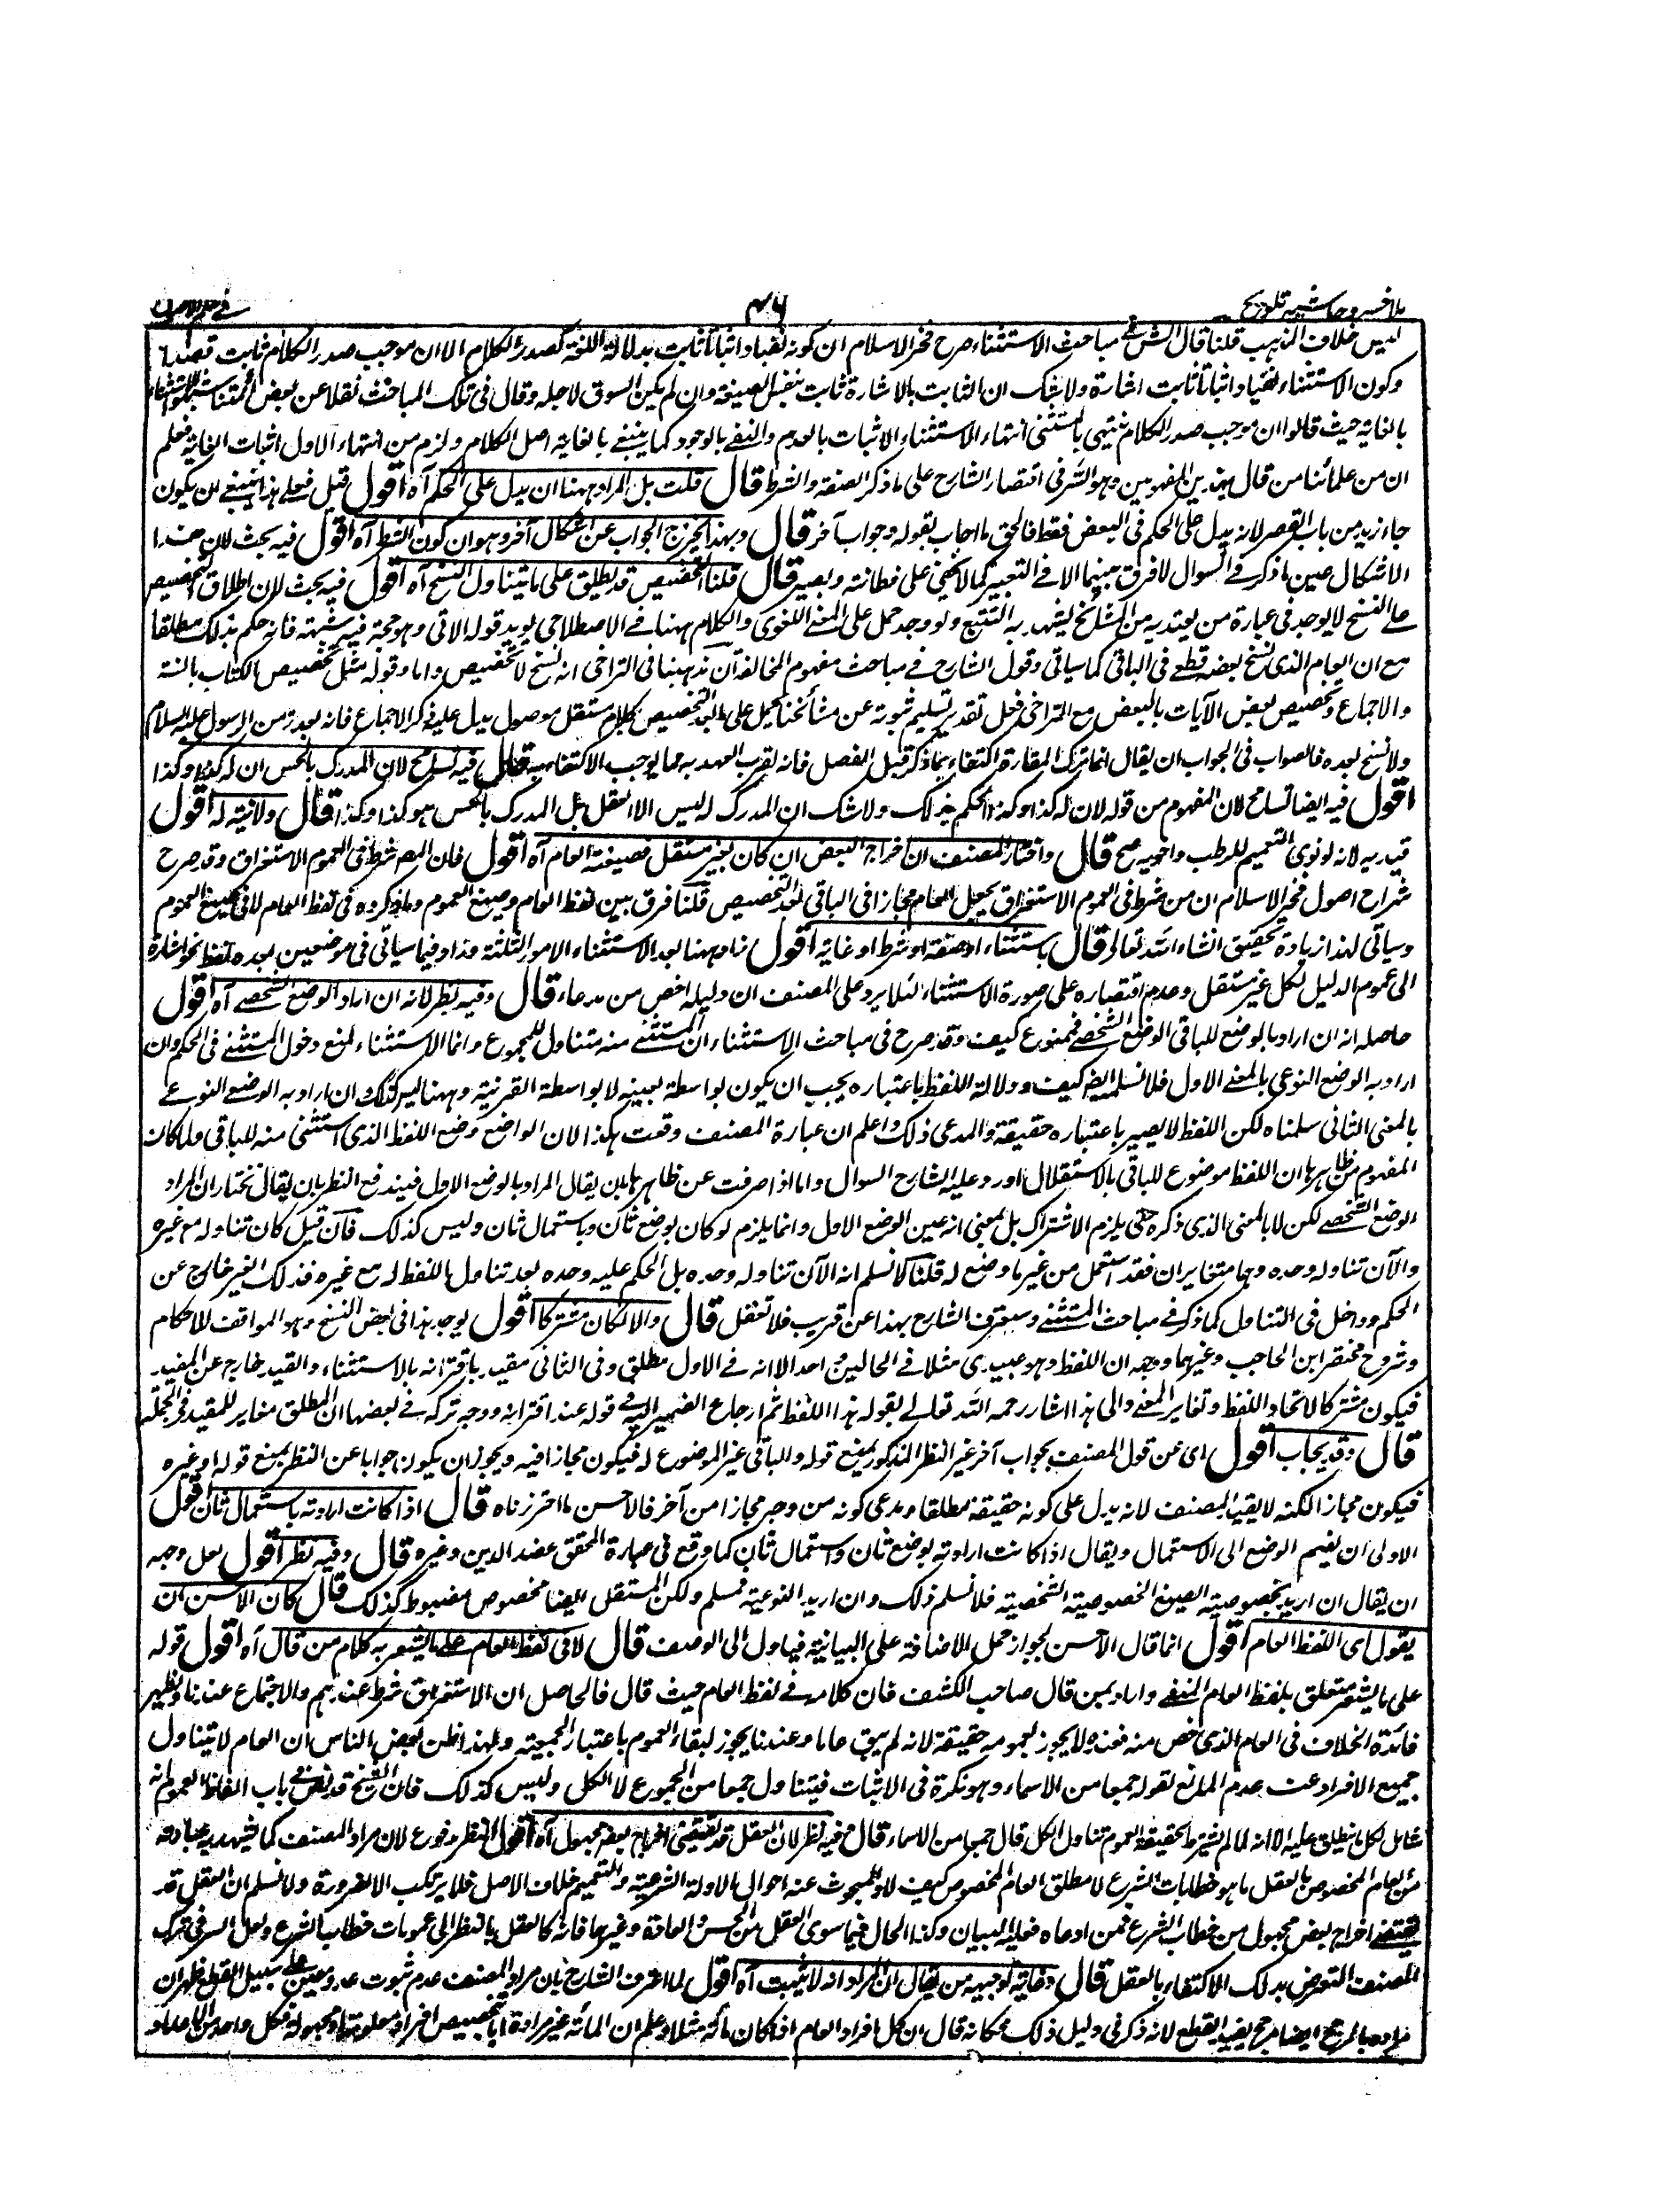 ملا خسرو حاشيه تلويح ۴۶
ليس خلاف المذهب قلنا قال الش فى مباحث الاستثناء صرح فخر الاسلام ان كونه نفيا واثباتا ثابت بدلالة اللغة كصدر الكلام الا ان موجب صدر الكلام ثابت قصدا
وكون الاستثناء نفيا واثباتا ثابت اشارة ولا شك ان الثابت بالاشارة ثابت بنفس الصيغة وان لم يكن السوق لاجله وقال فى تلك المباحث نقلا عن بعض
بالغاية حيث قالوا ان موجب صدر الكلام ينتهى بالمستثنى انتهاء الاستثناء الاثبات بالعدم والنفى بالوجود كما ينتهى بالغاية اصل الكلام ولزم من انتهاء الاول اثبات الغاية فعلم
ان من علمائنا من قال بهذين المفهومين وهو السر فى اقتصار الشارح على ما ذكر الصفة والشرط قال قلت بل المراد ههنا ان يدل على الحكم آه اقول قيل فعلى هذا ينبغى ان يكون
جاء زيد من باب القصر لانه يدل على الحكم فى البعض فقط فالحق ما اجاب بقوله وجواب آخر قال وبهذا يخرج الجواب عن اشكال آخر وهو ان كون الشرط آه اقول فيه بحث لان هذا
الاشكال عين ما ذكر فى السوال لا فرق بينهما الا فى التعبير كما لا يخفى على فطانة وبصير قال قلنا التخصيص قد يطلق على ما يتناول النسخ آه اقول فيه بحث لان اطلاق التخصيص
على النسخ لا يوجد فى عبارة من يعتد به من المشائخ يشهد به التتبع ولو وجد حمل على المعنى اللغوى والكلام ههنا فى الاصطلاحى يويد قوله الاتى وهو حجة فيه شبهة فانه حكم بذلك مطلقا
مع ان العام الذى نسخ بعضه قطعى فى الباقى كما سياتى وقول الشارح فى مباحث مفهوم المخالفة ان مذهبنا فى التراخى انه نسخ لا تخصيص واما قوله مثل تخصيص الكتاب بالسنة
والاجماع وتخصيص بعض الآيات بالبعض مع التراخى فعلى تقدير تسليم ثبوته عن مشائخنا يحمل على ما بعد التخصيص بكلام مستقل موصول يدل عليه ذكر الاجماع فانه بعد زمن الرسول عليه السلام
ولا نسخ بعده فالصواب فى الجواب ان يقال انما ترك المقارنة اكتفاء بما ذكر قبيل الفصل فانه لقرب العهد به مما يوجب الاكتفاء به قال فيه تسامح لان المدرك بالحس ان له كذا وكذا
اقول فيه ايضا تسامح لان المفهوم من قوله لان له كذا وكذا الحكم بذلك ولا شك ان المدرك له ليس الا العقل بل المدرك بالحس هو كذا وكذا قال ولا نية له اقول
قيد به لانه لو نوى التعميم للرطب صح قال واختار المصنف ان اخراج البعض ان كان بغير مستقل فصيغة العام آه اقول فان المص شرط فى العموم الاستغراق وقد صرح
شراح اصول فخر الاسلام ان من شرط فى العموم الاستغراق يجعل العام مجازا فى الباقى بعد التخصيص قلنا فرق بين لفظ العام وصيغ العموم وما ذكروه فى لفظ العام لا فى صيغ العموم
وسياتى لهذا زيادة تحقيق انشاء الله تعالى قال باستثناء او صفة او شرط او غاية اقول زاد ههنا بعد الاستثناء الامور الثلثة وزاد فيما سياتى فى موضعين بعده لفظ نحو اشارة
الى عموم الدليل لكل غير مستقل وعدم اقتصاره على صورة الاستثناء لئلا يرد على المصنف ان دليله اخص من مدعاه قال وفيه نظر لانه ان اراد الوضع الشخصى آه اقول
حاصله انه ان اراد بالوضع للباقى الوضع الشخصى فممنوع كيف وقد صرح فى مباحث الاستثناء ان المستثنى منه متناول للمجموع وانما الاستثناء لمنع دخول المستثنى فى الحكم وان
اراد به الوضع النوعى بالمعنى الاول فلا نسلم ايضا كيف ودلالة اللفظ باعتباره يجب ان يكون بواسطة تعيينه لا بواسطة القرينة وههنا ليس كذلك وان اراد به الوضع النوعى
بالمعنى الثانى سلمناه لكن اللفظ لا يصير باعتباره حقيقة والمدعى ذلك واعلم ان عبارة المصنف وقعت هكذا لان الواضع وضع اللفظ الذى استثنى منه للباقى ولما كان
المفهوم من ظاهرها ان اللفظ موضوع للباقى بالاستقلال اورد عليه الشارح السوال واما اذا صرفت عن ظاهرها بان يقال المراد بالوضع الاول فيندفع النظر بان يقال نختار ان المراد
الوضع الشخصى لكن لا بالمعنى الذى ذكره حتى يلزم الاشتراك بل بمعنى انه عين الوضع الاول وانما يلزم لو كان بوضع ثان وباستعمال ثان وليس كذلك فان قيل كان تناوله مع غيره
والآن تناوله وحده وهما متغايران فقد استعمل من غير ما وضع له قلنا لا نسلم انه الآن تناوله وحده بل الحكم عليه وحده بعد تناول اللفظ له مع غيره فذلك الغير خارج عن
الحكم وداخل فى التناول كما ذكر فى مباحث المستثنى وسيعترف الشارح بهذا عن قريب فلا تغفل قال والا لكان مشتركا اقول يوجد هذا فى بعض النسخ وهو الموافق للاحكام
وشروح مختصر ابن الحاجب وغيرهما ووجه ان اللفظ وهو عبيدى مثلا فى الحالين واحد الا انه فى الاول مطلق وفى الثانى مقيد باقترانه بالاستثناء والقيد خارج عن المقيد
فيكون مشتركا لاتحاد اللفظ وتغاير المعنى والى هذا اشار رحمه الله تعالى بقوله هذا اللفظ ثم ارجاع الضمير اليه فى قوله عند اقترانه ووجه تركه فى بعضها ان المطلق مغاير للمقيد فى الجملة
قال وقد يجاب اقول اى عن قول المصنف بجواب آخر غير النظر المذكور بمنع قوله والباقى غير الموضوع له فيكون مجازا فيه ويجوز ان يكون جوابا عن النظر بمنع قوله او غيره
فيكون مجازا لكنه لا يفيد المصنف لانه يدل على كونه حقيقة مطلقا ومدعى كونه من وجه مجازا من آخر فالاحسن ما احترزناه قال اذا كانت ارادته باستعمال ثان اقول
الاولى ان يضم الوضع الى الاستعمال ويقال اذا كانت ارادته بوضع ثان واستعمال ثان كما وقع فى عبارة المحقق عضد الدين وغيره قال وفيه نظر اقول لعل وجهه
ان يقال ان اريد بخصوصية الصيغ الخصوصية الشخصية فلا نسلم ذلك وان اريد النوعية فمسلم ولكن المستقل ايضا مخصوص مضبوط كذلك قال كان الاحسن ان
يقول اى اللفظ العام اقول انما قال الاحسن لجواز حمل الاضافة على البيانية فياول الى الوصف قال لا فى لفظ العام على ما يشعر به كلام من قال آه اقول قوله
على ما يشعر متعلق بلفظ العام المنفى واراد بمن قال صاحب الكشف فان كلامه فى لفظ العام حيث قال فالحاصل ان الاستغراق شرط عندهم والاجتماع عندنا ويظهر
فائدة الخلاف فى العام الذى خص منه فعنده لا يجوز بعمومه حقيقة لانه لم يبق عاما وعندنا يجوز لبقاء العموم باعتبار الجمعية ولهذا ظن بعض الناس ان العام لا يتناول
جميع الافراد عند عدم المانع لقوله جمعا من الاسماء وهو نكرة فى الاثبات فيتناول جمعا من الجموع لا الكل وليس كذلك فان الشيخ قد نص فى باب الفاظ العموم انه
شامل لكل ما ينطلق عليه الا انه لما لم يشترط لحقيقة العموم تناول الكل قال جمعا من الاسماء قال فيه نظر لان العقل قد يقتضى اخراج بعض مجهول آه اقول النظر مدفوع لان مراد المصنف كما يشهد به عبارته
من العام المخصوص بالعقل ما هو خطابات الشرع لا مطلق العام المخصوص كيف لا والمبحوث عنه احوال الادلة الشرعية والتعميم خلاف الاصل فلا يرتكب الا لضرورة ولا نسلم ان العقل قد
يقتضى اخراج بعض مجهول من خطاب الشرع فمن ادعاه فعليه البيان وكذا الحال فيما سوى العقل من الحس والعادة وغيرهما فانه كالعقل بالنظر الى عمومات خطاب الشرع ولعل السر فى ترك
المصنف التعرض بذلك الاكتفاء بالعقل قال وغاية توجيهه من يقال ان المراد انه لا يثبت آه اقول لما اعترف الشارح بان مراد المصنف عدم ثبوت عدد معين على سبيل القطع ظهر ان
مراده بالمرجح ايضا مرجح يفيد القطع لانه ذكر فى دليل ذلك فكانه قال ان كل افراد العام اذا كان مائة مثلا وعلم ان المائة غير مرادة